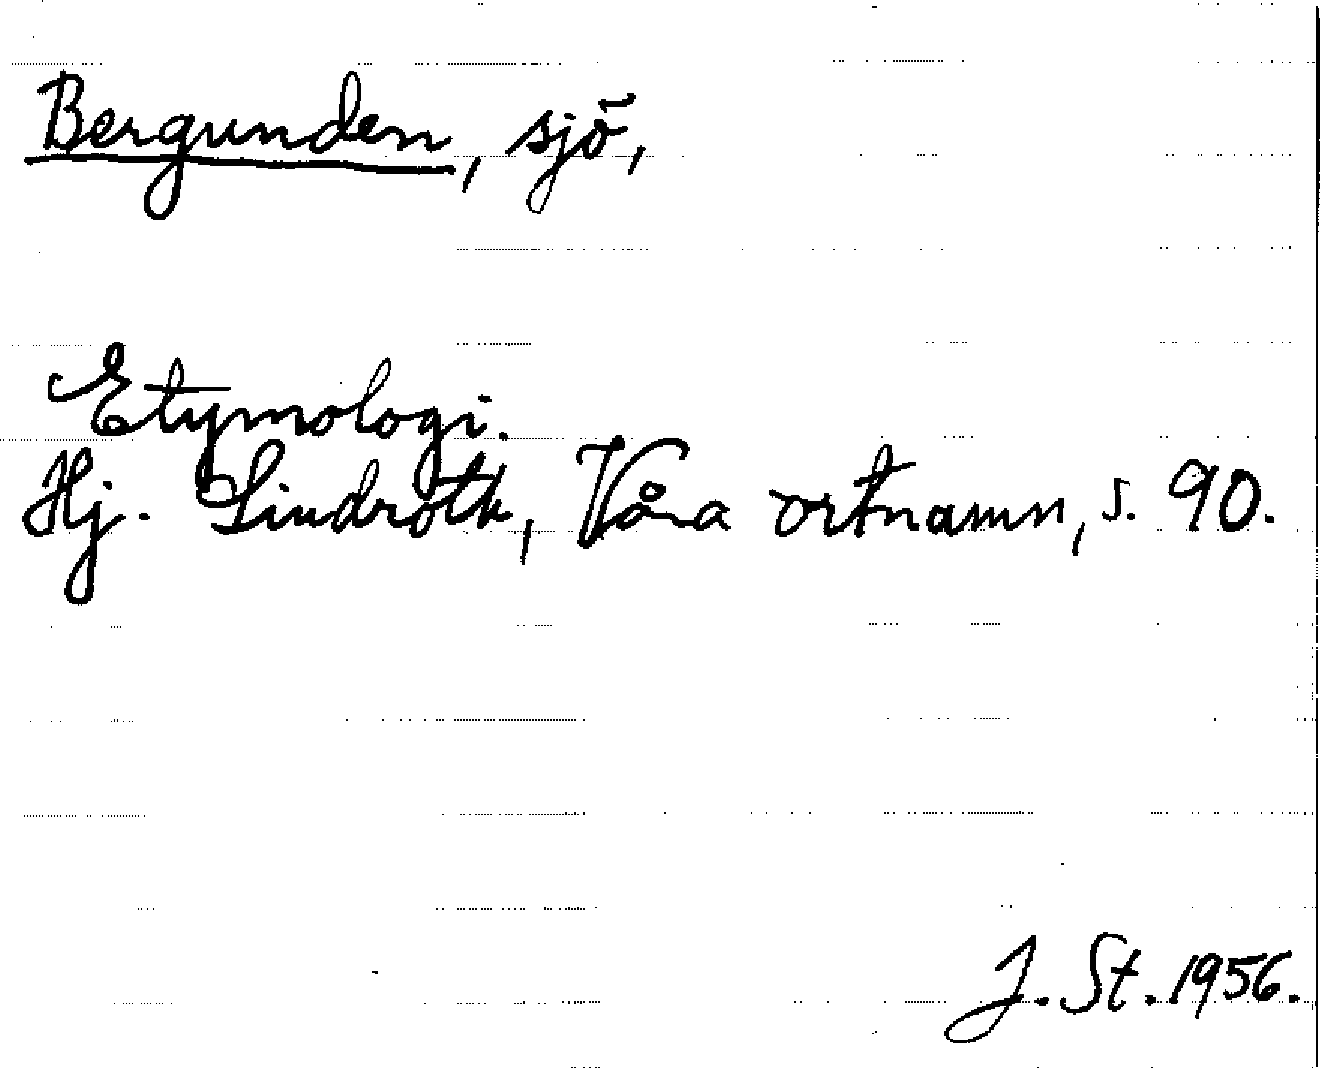 Bergunden, sjö,
Etymologi.
Hj. Lindroth, Våra ortnamn, s. 90.
J. St. 1956.